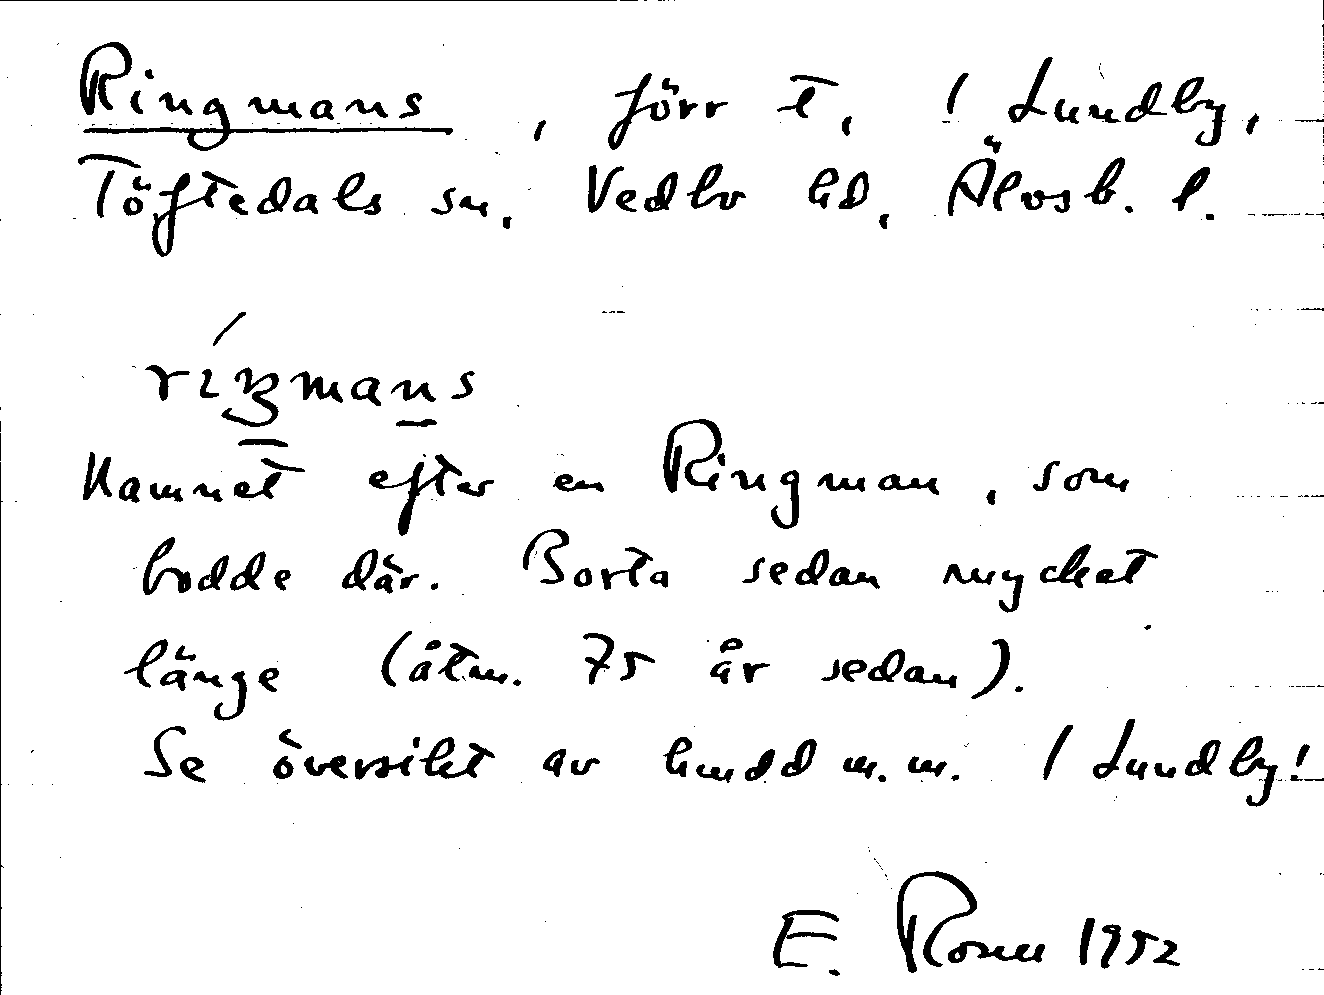 Ringmans, förr t, / Lundby,
Töftedals sn, Vedbo hd, Älvsb. l.
ríŋmans
Namnet efter en Ringman, som
bodde där. Borta sedan mycket
länge (åtm. 75 år sedan).
Se översikt av hmdd m.m. / Lundby!
E. Rosell 1952